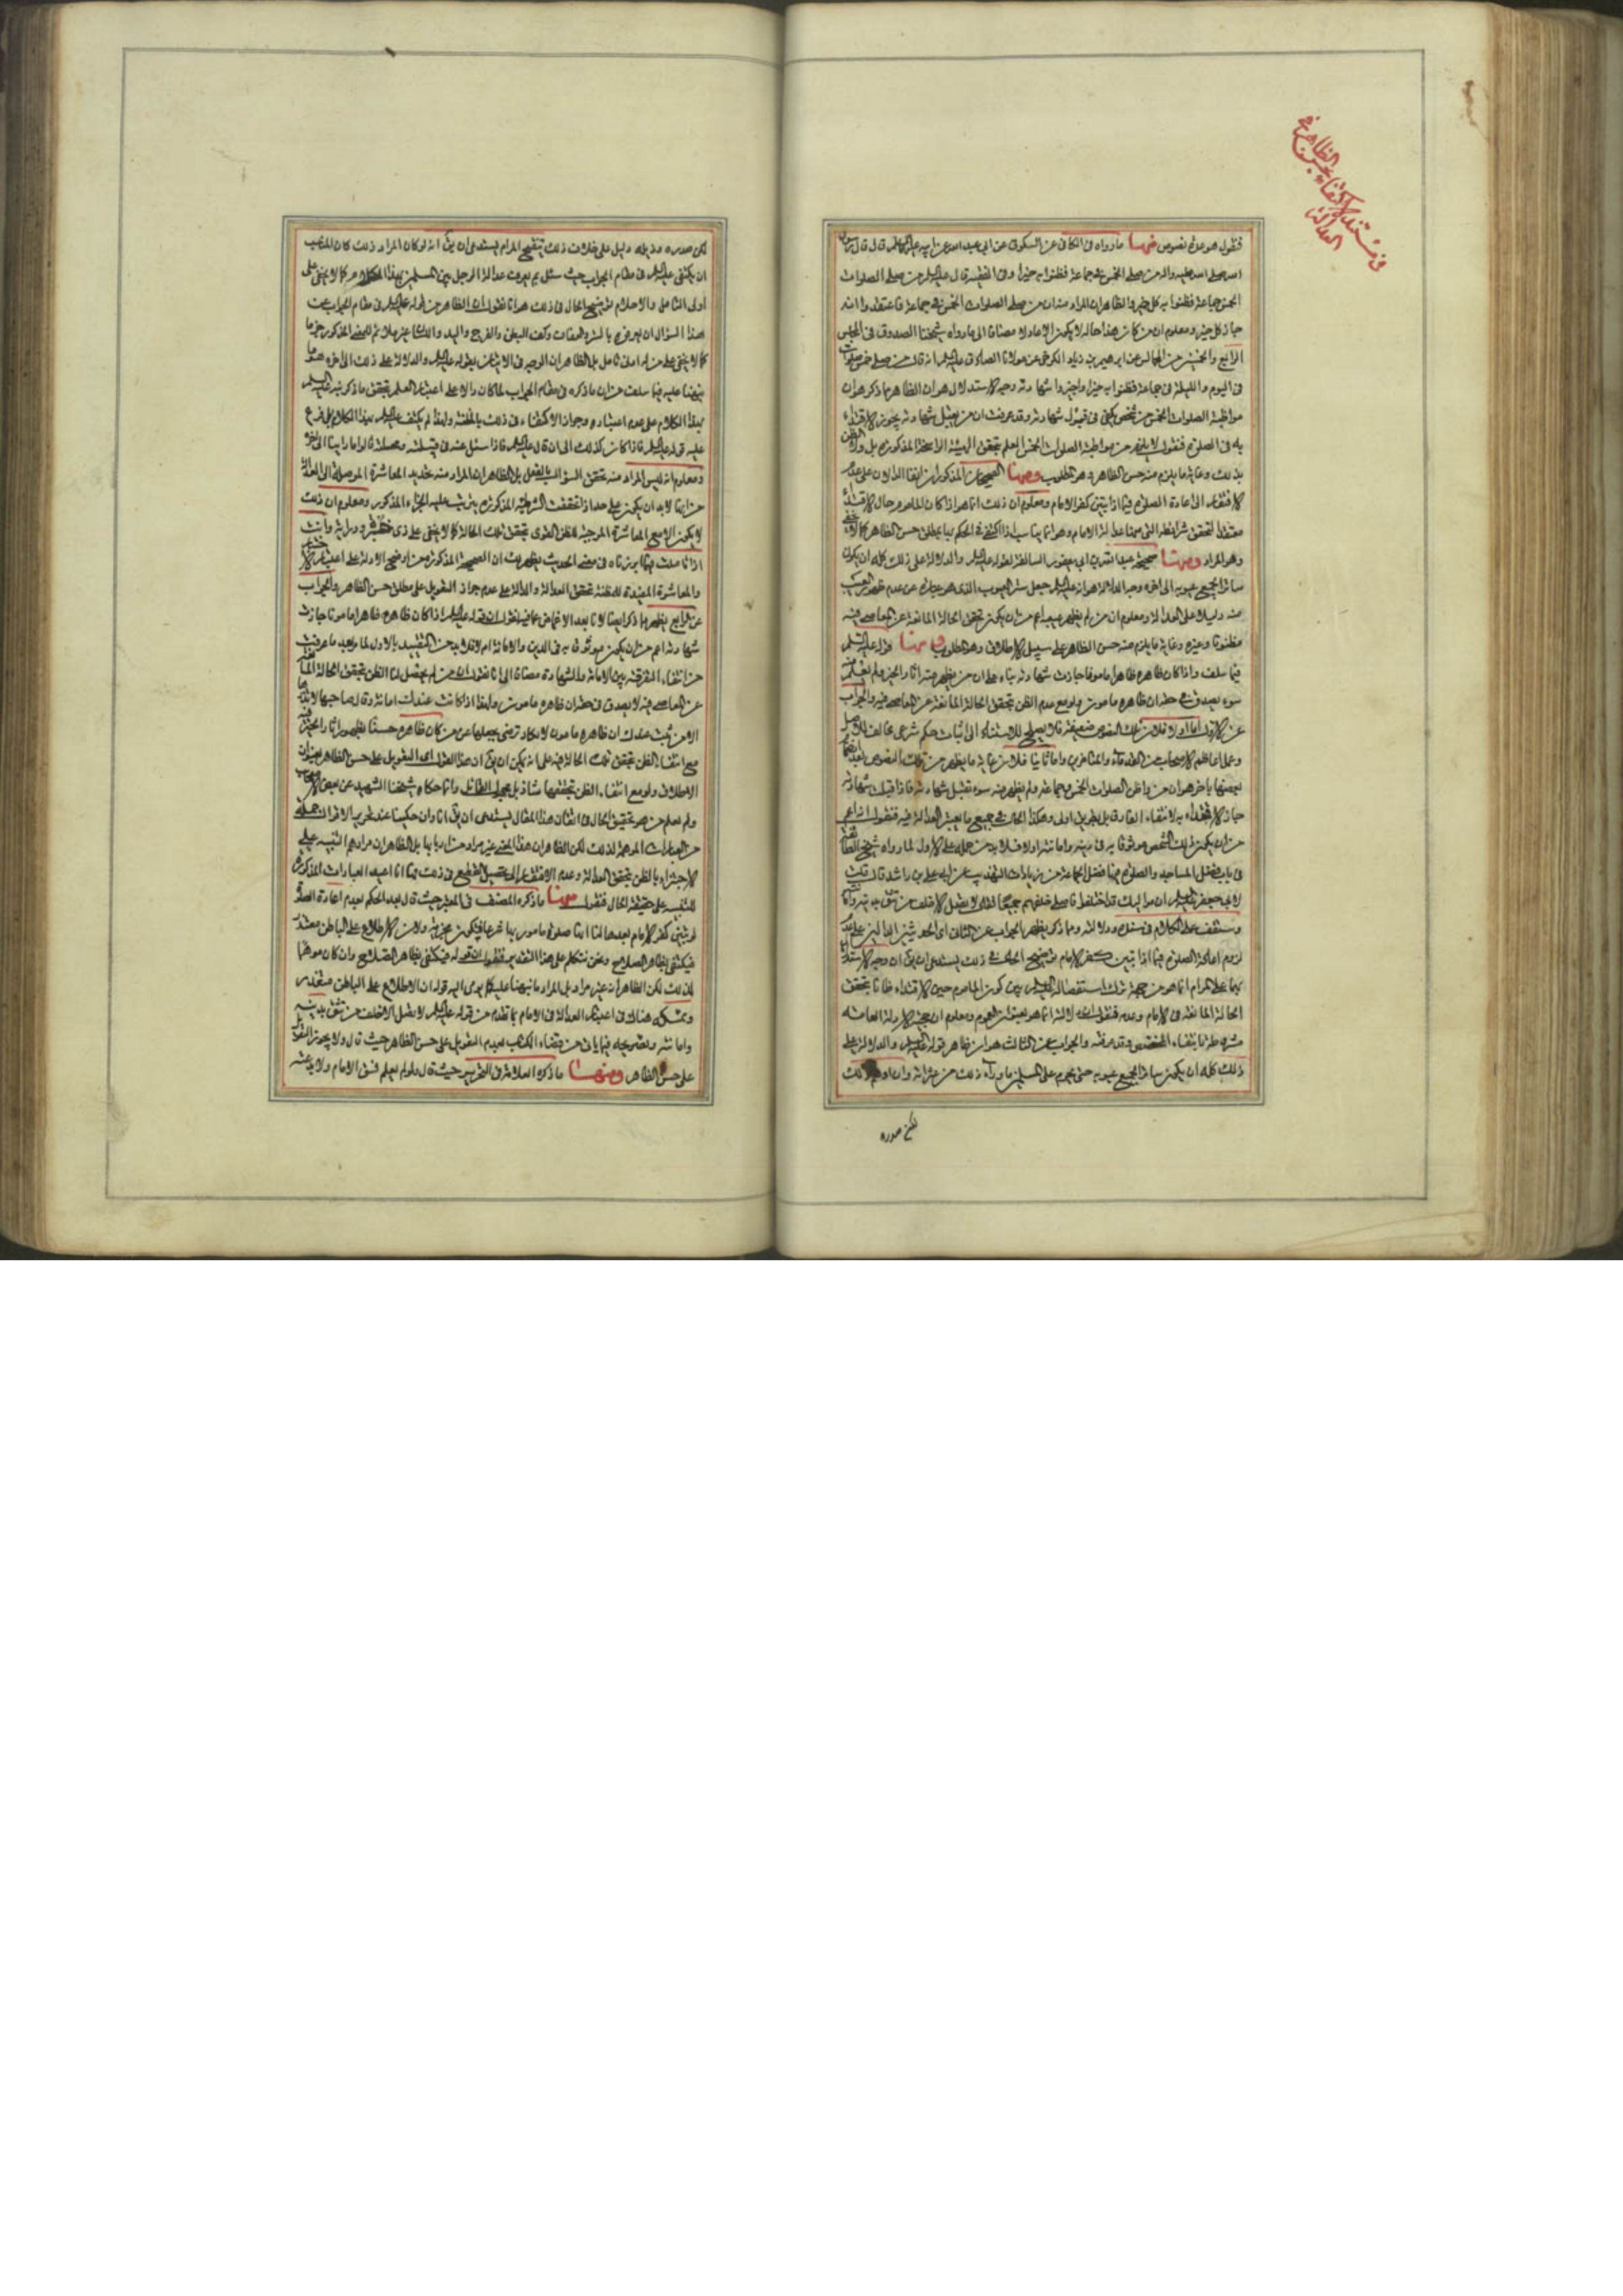 في مستند الاكتفاء بحسن الظاهر في
العدالة
فنقول هو عدة نصوص منها ما رواه في الكافي عن السكوني عن ابي عبد الله عن ابيه عليهما السلم قال قال رسول
الله صلى الله عليه واله من صلى الخمس في جماعة فظنوا به خيرا وفي الفقيه قال عليه السلم من صلى الصلوات
الخمس جماعة فظنوا به كل خير والظاهر ان المراد منه ان من صلى الصلوات الخمس في جماعة فاعتقدوا انه
حاز كل خير ومعلوم ان من كان هذا حاله لا يكون الا عادلا مضافا الى ما رواه شيخنا الصدوق في المجلس
الرابع والخمسين من المجالس عن ابرهيم بن زياد الكرخي عن مولانا الصادق عليه السلم انه قال من صلى خمس صلوات
في اليوم والليلة في جماعة فظنوا به خيرا واجيزوا شهادته وجه الاستدلال هو ان الظاهر مما ذكر هو ان
مواظبة الصلوات الخمس من شخص يكفي في قبول شهادته وقد عرفت ان من يقبل شهادته يجوز الاقتداء
به في الصلوة فنقول لا يلزم من مواظبة الصلوات الخمس العلم بتحقق الهيئة الراسخة المذكورة بل ولا الظن
بذلك وغاية ما يلزم منه حسن الظاهر وهو المطلوب ومنها الصحيحان المذكوران انفا الدالان على عدم
الافتقار الى اعادة الصلوة فيما اذا تبين كفر الامام ومعلوم ان ذلك انما هو اذا كان الماموم حال الاقتداء
معتقدا لتحقق شرائطه التي منها عدالة الامام وهو انما يناسب اذا اكتفى في الحكم بها بمطلق حسن الظاهر كما لا يخفى
وهو المراد ومنها صحيحة عبد الله بن ابي يعفور السالفة لقوله عليه السلم والدلالة على ذلك كله ان يكون
ساترا لجميع عيوبه الى اخره وجه الدلالة هو انه عليه السلم جعل ستر العيوب الذي هو عبارة عن عدم ظهور العيب
منه دليلا على العدالة ومعلوم ان من لم يظهر عيبه اعم من ان يكون تحقق الحالة المانعة عن المعاصي فيه
مظنونا وغيره وغاية ما يلزم منه حسن الظاهر على سبيل الاطلاق وهو المطلوب ومنها قوله عليه السلم
فيما سلف واذا كان ظاهره ظاهرا مامونا جازت شهادته بناء على ان من يظهر منه اثار الخير ولم يعلم منه
سوء يصدق في حقه ان ظاهره مامون ولو مع عدم الظن بتحقق الحالة المانعة عن المعاصي فيه والجواب
عن الاول اما اولا فلان تلك النصوص ضعيفة فلا يصلح للاستناد الى اثبات حكم شرعي مخالف للاصل
وعمل اعاظم الاصحاب من القدماء والمتاخرين واما ثانيا فلان غاية ما يظهر من تلك النصوص بعد ضم
بعضها باخر هو ان من واظب الصلوات الخمس في جماعة ولم يظهر منه سوء تقبل شهادته فاذا قبلت شهادته
جاز الاقتداء به لانتفاء الفارق بل بطريق اولى وهكذا الحال في جميع ما يعتبر العدالة فيه فنقول انه اعم
من ان يكون ذلك الشخص موثوقا به في دينه وامانته اولا فلابد من حمله على الاول لما رواه شيخ الطائفة
في باب فضل المساجد والصلوة فيها وفضل الجماعة من زيادات التهذيب عن ابي علي بن راشد قال قلت
لابي جعفر عليه السلم ان مواليك قد اختلفوا فاصلي خلفهم جميعا فقال لا تصل الا خلف من تثق بدينه وامانته
وستقف على الكلام في سنده ودلالته ومما ذكر يظهر الجواب عن الثاني اي الحديثين الدالين على عدم
لزوم اعادة الصلوة فيما اذا تبين كفر الامام توضيح الحال في ذلك يستدعي ان يق ان وجه الاستدلال
بهما على المرام انما هو من جهة ترك استفصاله عليه السلم بين كون الماموم حين الاقتداء ظانا بتحقق
الحالة المانعة في الامام وعدمه فنقول ان دلالة انما هو بعنوان العموم ومعلوم ان حجية الادلة العامة
مشروطة بانتفاء المخصص وقد عرفته والجواب عن الثالث هو ان ظاهر قوله عليه السلم والدلالة على
ذلك كله ان يكون ساترا لجميع عيوبه حتى يحرم على المسلمين ما وراء ذلك من عثراته وان اوهم ذلك
لكن صدره
لكن صدره وذيله دليل على خلاف ذلك تنقيح المرام يستدعي ان يق انه لو كان المراد ذلك كان المناسب
ان يكتفي عليه السلم في مقام الجواب حيث سئل بم يعرف عدالة الرجل بين المسلمين بهذا الكلام كما لا يخفى على
اولى التامل والاحلام توضيح الحال في ذلك هو انا نقول ان الظاهر من قوله عليه السلم في مقام الجواب عن
هذا السؤال ان يعرفوه بالستر والعفاف وكف البطن والفرج واليد واللسان
كما لا يخفى على من له ادنى تامل بل الظاهر ان الوجه في الاتيان بقوله عليه السلم والدلالة على ذلك الى اخره هو ما
نبهنا عليه فيما سلف من ان ما ذكره في مقام الجواب لما كان دالا على اعتبار العلم بتحقق ما ذكر نبه عليه السلم
بهذا الكلام على عدم اعتباره وجواز الاكتفاء في ذلك بالمظنة ولهذا لم يكتف عليه السلم بهذا الكلام بل فرع
عليه قوله عليه السلم فاذا كان كذلك الى ان قال عليه السلم فاذا سئل عنه في قبيلته ومحلته قالوا ما راينا الى اخره
ومعلوم انه ليس المراد منه تحقق السؤال بالفعل بل الظاهر ان المراد منه تحديد المعاشرة الموصلة الى العدالة
من انها لابد ان يكون على حد اذا تحققت الشرطية المذكورة يترتب عليه الجزاء المذكور ومعلوم ان ذلك
لا يكون الا مع المعاشرة الموجبة للظن القوي بتحقق تلك الحالة كما لا يخفى على ذي خبرة ودراية وانت
اذا تاملت فيما ابرزناه في معنى الحديث يظهر لك ان الصحيحة المذكورة من اوضح الادلة على اعتبار الاختبار
والمعاشرة المفيدة للمظنة بتحقق العدالة والدالة على عدم جواز التعويل على مطلق حسن الظاهر والجواب
عن الرابع يظهر مما ذكر ايضا لانا بعد الاغماض عما فيه نقول ان قوله عليه السلم اذا كان ظاهره ظاهرا مامونا جازت
شهادته اعم من ان يكون موثوقا به في الدين والامانة ام لا فلابد من التقييد بالاول لما رواه بعد ما عرفت
من انتفاء التفرقة بين الامامة والشهادة مضافا الى انا نقول ان من لم يحصل لنا الظن بتحقق الحالة المانعة
عن المعاصي فيه لا يصدق في حقه ان ظاهره مامون ولهذا اذا كانت عندك امانة وقال صاحبها
الا من ثبت عندك ان ظاهره مامون لا تكاد ترضى بجعلها عن من كان ظاهره حسنا لظهور اثار الخير فيه
مع انتفاء الظن بتحقق تلك الحالة فيه على انه يمكن ان يق ان هذا القول اي التعويل على حسن الظاهر بعنوان
الاطلاق ولو مع انتفاء الظن بتحققها شاذ بل مجهول القائل واما ما حكاه شيخنا الشهيد عن بعض الاصحاب
ولم نعلم من هو تحقيق الحال في اتقان هذا المقال يستدعي ان يق انا وان حكينا عند تحرير الاقوال جملة
من العبارات الموهمة لذلك لكن الظاهر ان هذا المعنى غير مراد من اربابها بل الظاهر ان مرادهم التنبيه على
الاجتزاء بالظن بتحقق العدالة وعدم الافتقار الى تحصيل القطع في ذلك فها انا اعيد العبارات المذكورة
للتنبيه على حقيقة الحال فنقول منها ما ذكره المصنف في المعتبر حيث قال بعد الحكم بعدم اعادة الصلوة
لو تبين كفر الامام بعدها لنا انها صلوة مامور بها شرعا فيكون مجزية ولان الاطلاع على الباطن متعذر
فيكتفى بظاهر الصلاح ونحن نتكلم على هذا التقدير فنقول ان قوله فيكتفى بظاهر الصلاح وان كان موهما
لذلك لكن الظاهر انه غير مراد بل المراد ما نبهنا عليه كما يومي اليه قوله ان الاطلاع على الباطن متعذر
وتمسكه هناك في اعتبار العدالة في الامام بما تقدم من قوله عليه السلم لا تصل الا خلف من تثق بدينه
وامانته وتصريحه فيما ياتي من قضاء الكتاب بعدم التعويل على حسن الظاهر حيث قال ولا يجوز التعويل
على حسن الظاهر ومنها ما ذكره العلامة في التحرير حيث قال ولو لم يعلم فسق الامام ولا بدعته